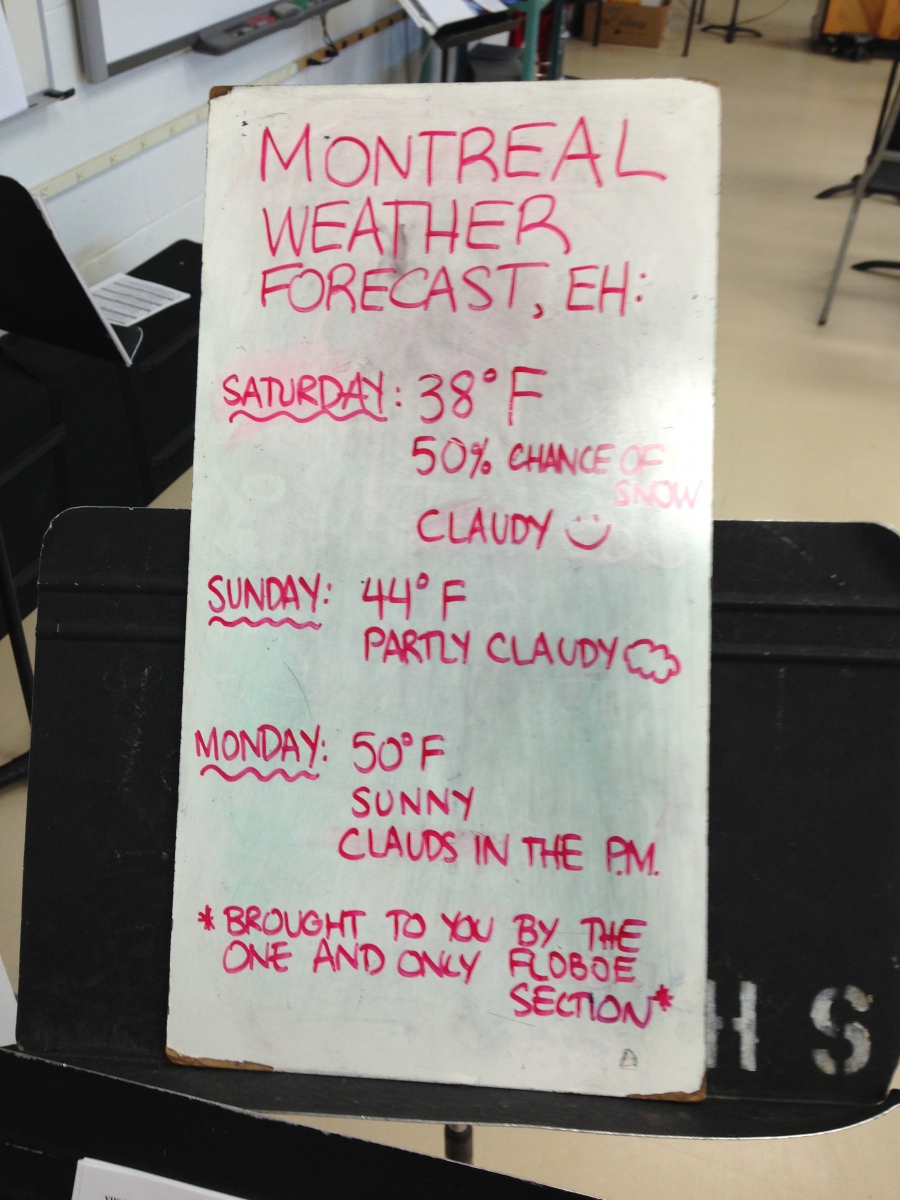 MONTREAL
WEATHER
FORECAST, EH:
SATURDAY: 38°F
50% CHANCE OF
SNOW
CLAUDY
SUNDAY: 44°F
PARTLY CLAUDY
MONDAY: 50°F
SUNNY
CLAUDS IN THE P.M.
*BROUGHT TO YOU BY THE
ONE AND ONLY FLOBOE
SECTION*
HS